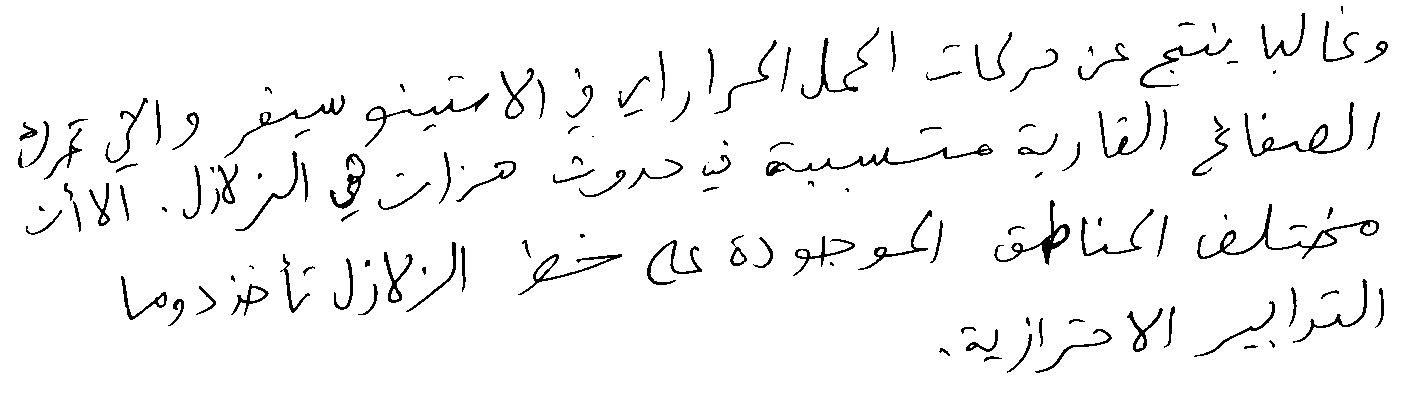 وغالبا ينتج عن حركات الحمل الحراراي في الاستينوسيفر والتي تحرك
الصفائح القارية متسببة في حدوث هزات هي الزلازل. الا أن
مختلف المناطق الموجودة على خط الزلازل تأخذ دوما
التدابير الاحترازية.